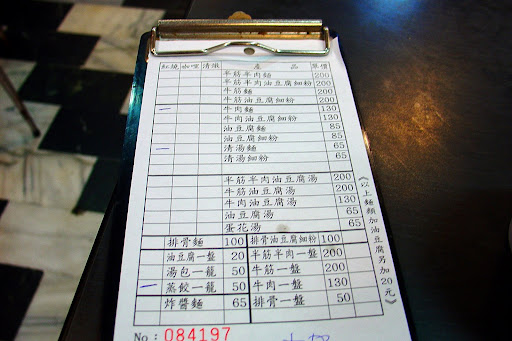 紅燒 咖哩 清燉 產品 單價
半筋半肉麵 200
半筋半肉油豆腐細粉 200
牛筋麵 200
牛筋油豆腐細粉 200
牛肉麵 130
牛肉油豆腐細粉 130
油豆腐麵 85
油豆腐細粉 85
清湯麵 65
清湯細粉 65
半筋半肉油豆腐湯 200
牛筋油豆腐湯 200
牛肉油豆腐湯 130
油豆腐湯 65
蛋花湯 65
《以上麵類加油豆腐另加20元》
排骨麵 100 排骨油豆腐細粉 100
油豆腐一盤 20 半筋半肉一盤 200
湯包一籠 50 牛筋一盤 200
蒸餃一籠 50 牛肉一盤 130
炸醬麵 65 排骨一盤 50
No: 084197